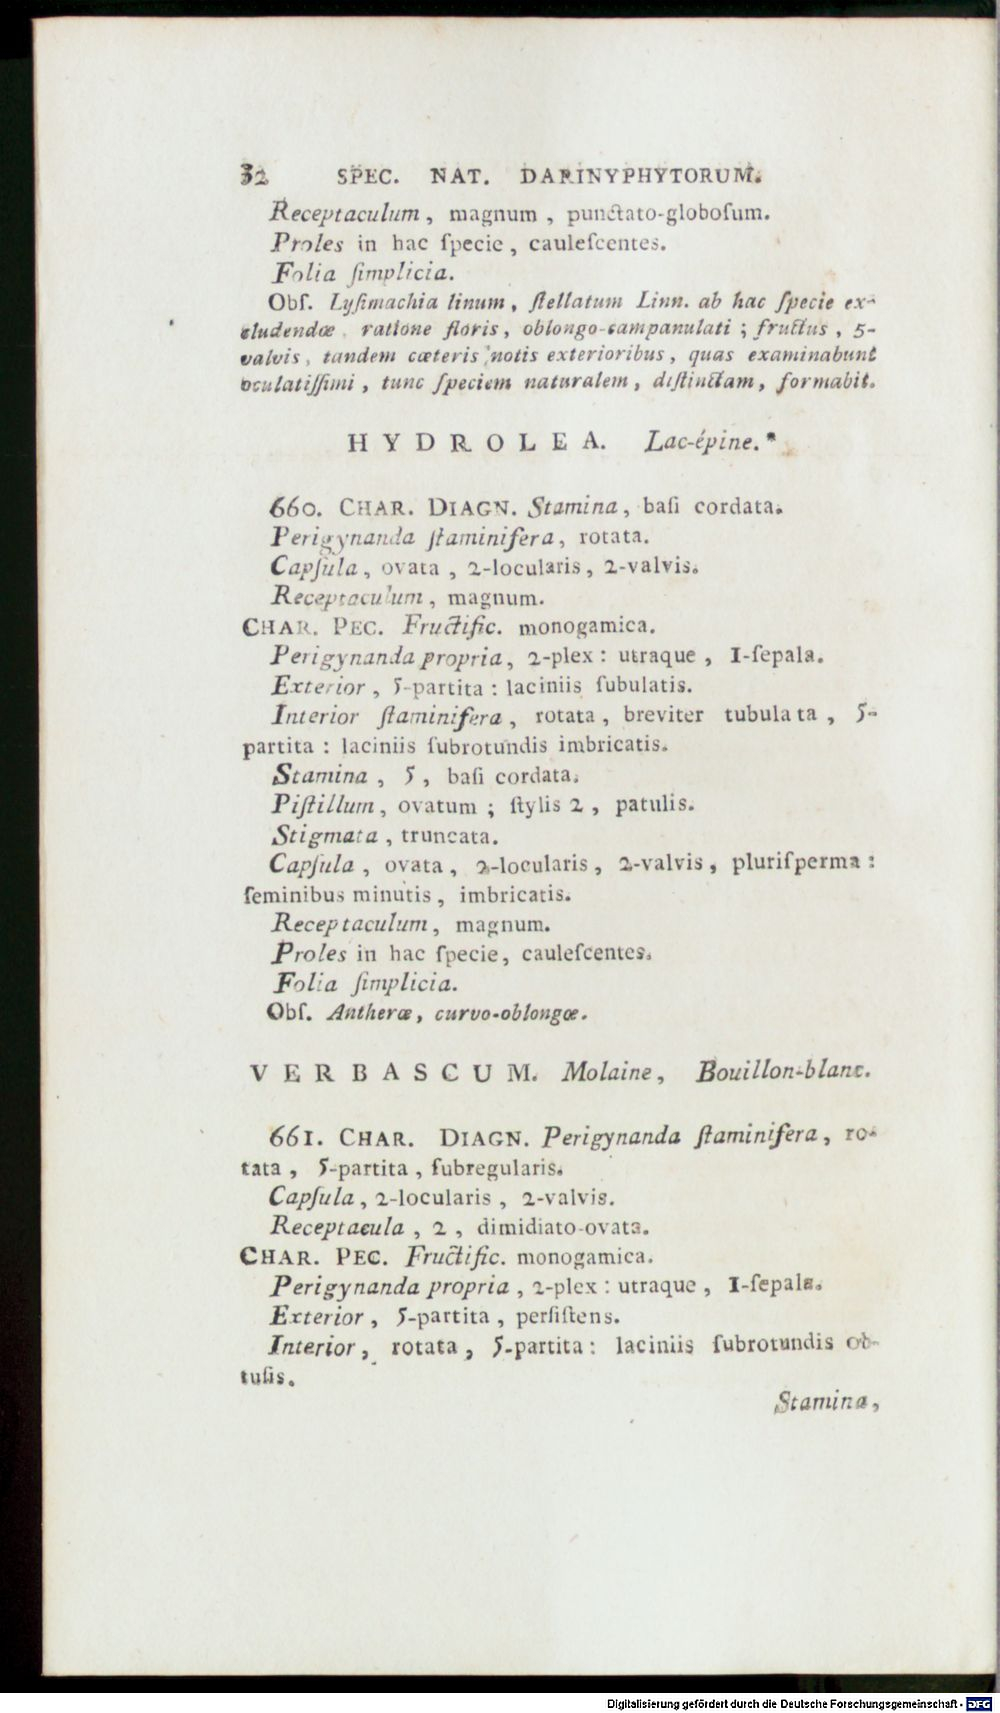 32 SPEC. NAT. DARINYPHYTORUM.
Receptaculum, magnum, punctato-globoſum.
Proles in hac ſpecie, cauleſcentes.
Folia ſimplicia.
Obſ. Lyſimachia linum, ſtellatum Linn. ab hac ſpecie ex-
cludendæ ratione floris, oblongo-campanulati; fructus, 5-
valvis, tandem cæteris notis exterioribus, quas examinabunt
oculatiſſimi, tunc ſpeciem naturalem, diſtinctam, formabit.
HYDROLEA. Lac-épine.*
660. CHAR. DIAGN. Stamina, baſi cordata.
Perigynanda ſtaminifera, rotata.
Capſula, ovata, 2-locularis, 2-valvis.
Receptaculum, magnum.
CHAR. PEC. Fructific. monogamica.
Perigynanda propria, 2-plex: utraque, 1-ſepala.
Exterior, 5-partita: laciniis ſubulatis.
Interior ſtaminifera, rotata, breviter tubulata, 5-
partita: laciniis ſubrotundis imbricatis.
Stamina, 5, baſi cordata.
Piſtillum, ovatum; ſtylis 2, patulis.
Stigmata, truncata.
Capſula, ovata, 2-locularis, 2-valvis, pluriſperma:
ſeminibus minutis, imbricatis.
Receptaculum, magnum.
Proles in hac ſpecie, cauleſcentes.
Folia ſimplicia.
Obſ. Antheræ, curvo-oblongæ.
VERBASCUM. Molaine, Bouillon-blanc.
661. CHAR. DIAGN. Perigynanda ſtaminifera, ro-
tata, 5-partita, ſubregularis.
Capſula, 2-locularis, 2-valvis.
Receptacula, 2, dimidiato-ovata.
CHAR. PEC. Fructific. monogamica.
Perigynanda propria, 2-plex: utraque, 1-ſepala.
Exterior, 5-partita, perſiſtens.
Interior, rotata, 5-partita: laciniis ſubrotundis ob-
tuſis.
Stamina,
Digitalisierung gefördert durch die Deutsche Forschungsgemeinschaft - DFG